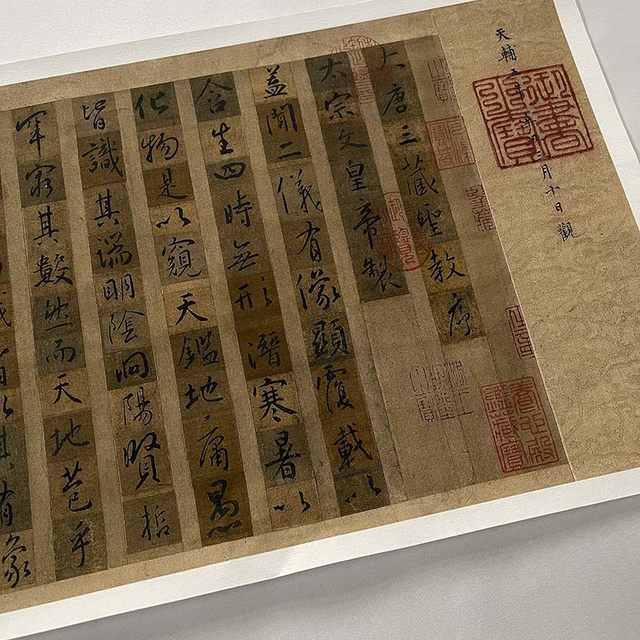 大唐三藏聖教序
太宗文皇帝製
蓋聞二儀有像顯覆載以
含生四時無形潛寒暑以
化物是以窺天鑑地庸愚
皆識其端明陰洞陽賢哲
罕窮其數然而天地苞乎
以其有象